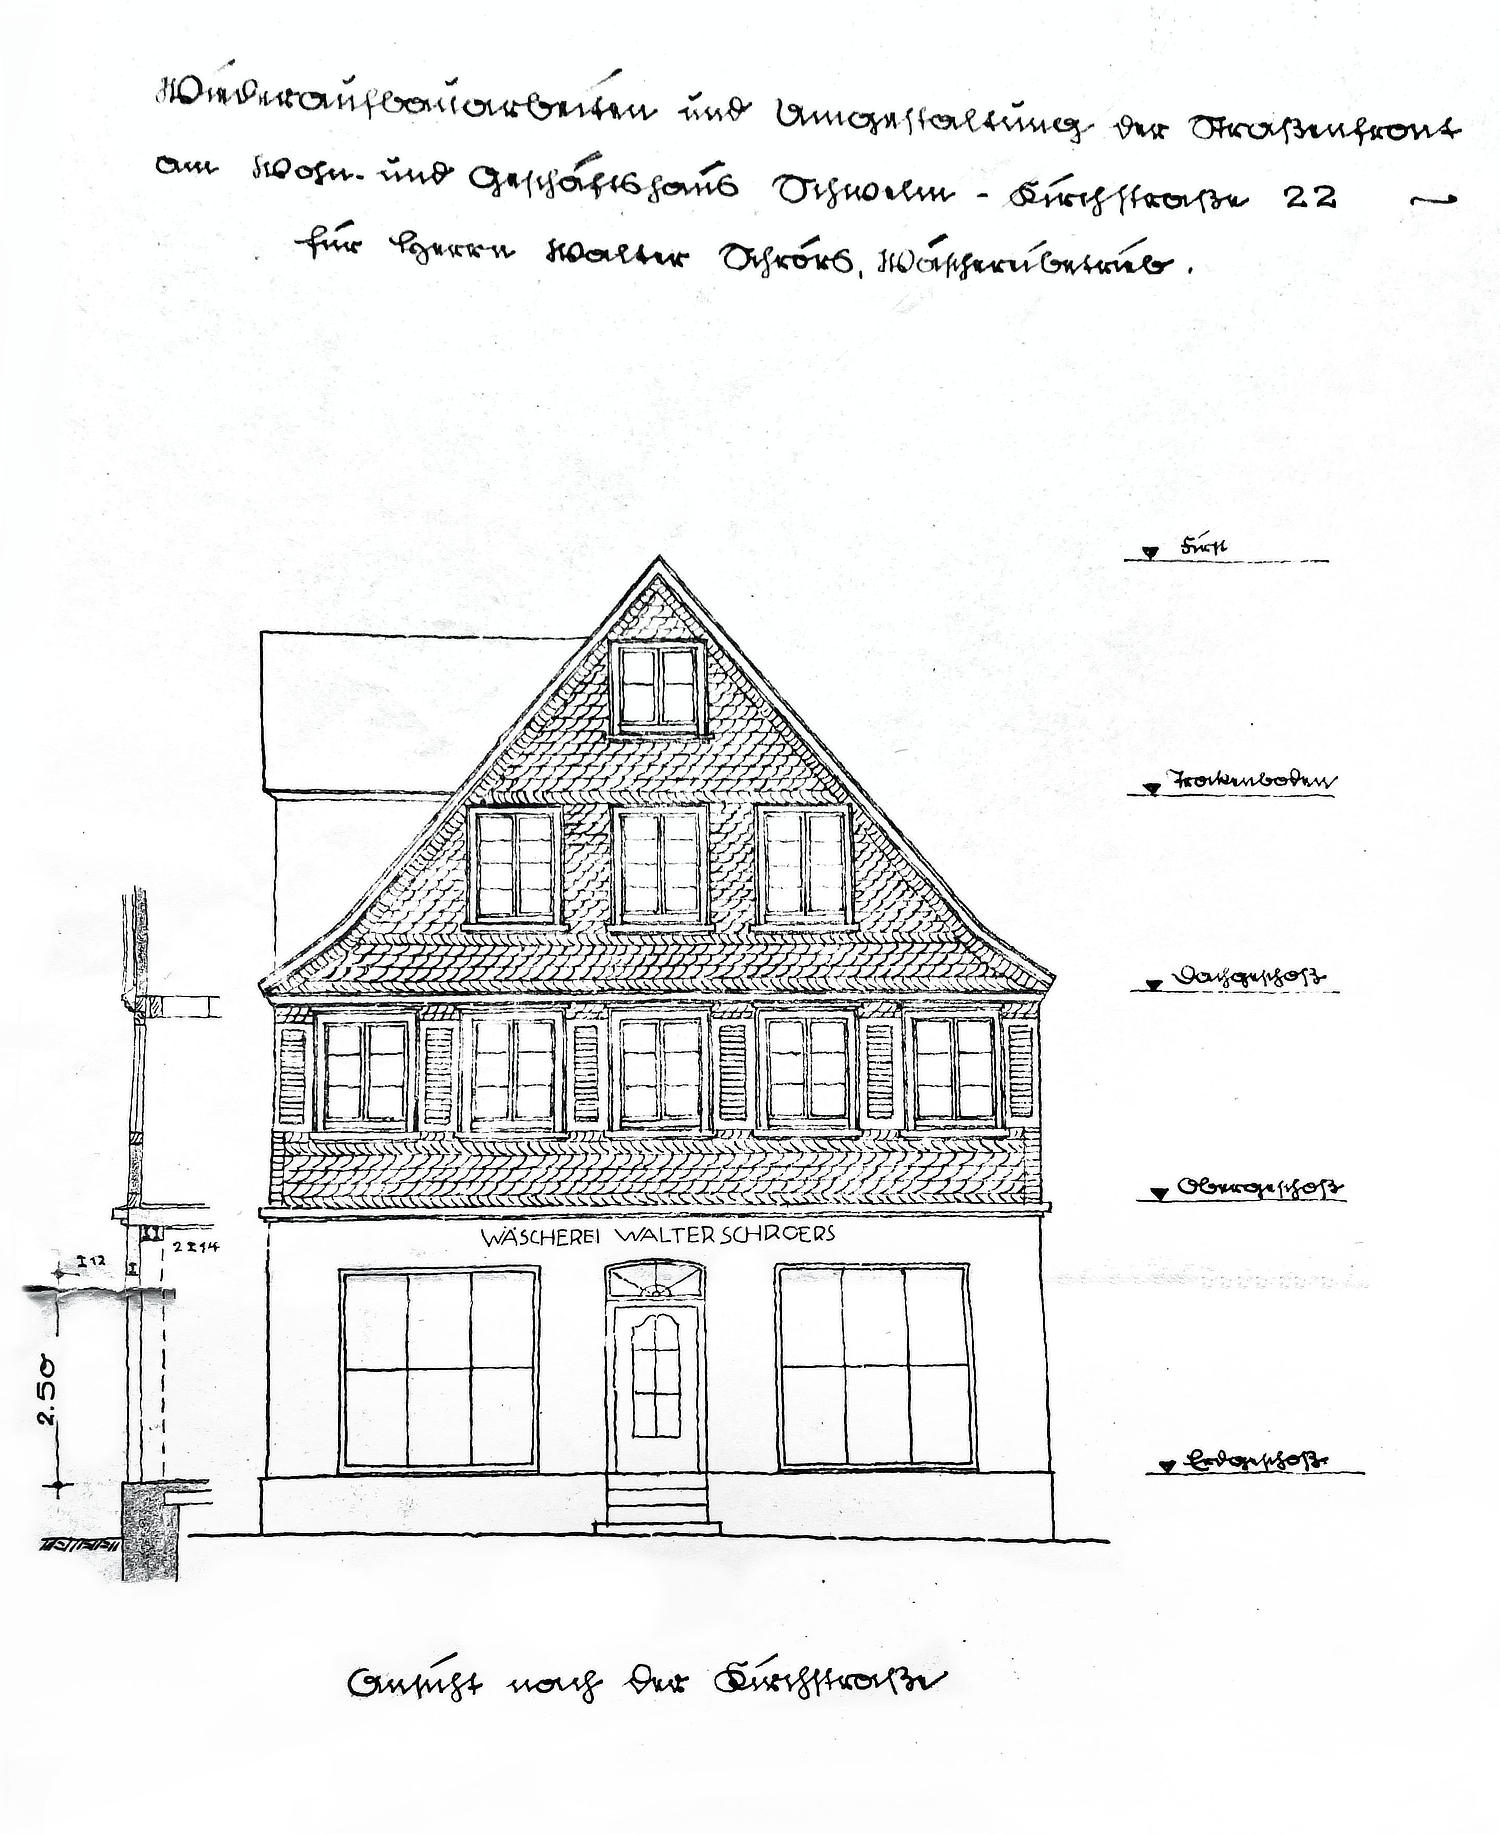 Wiederaufbauarbeiten und Umgestaltung der Straßenfront
am Wohn- und Geschäftshaus Schwelm - Kirchstraße 22
für Herrn Walter Schrörs, Wäschereibetrieb.
First
Trockenboden
Dachgeschoß
Obergeschoß
WÄSCHEREI WALTER SCHROERS
2 I 14
I 12
2.50
Erdgeschoß
Ansicht nach der Kirchstraße